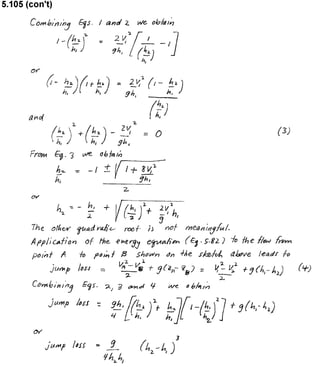 5.105 (con't)
Combining Eqs. 1 and 2 we obtain
1-(h₂/h₁)² = 2V₁²/gh₁ [1/(h₂/h₁) - 1]
or
(1- h₂/h₁)(1+ h₂/h₁) = 2V₁²/gh₁ (1- h₂/h₁)/(h₂/h₁)
and
(h₂/h₁)² + (h₂/h₁) - 2V₁²/gh₁ = 0 (3)
From Eq. 3 we obtain
h₂/h₁ = -1 ± √(1 + 8V₁²/gh₁) / 2
or
h₂ = - h₁/2 + √((h₁/2)² + 2V₁²h₁/g)
The other quadratic root is not meaningful.
Application of the energy equation (Eq. 5.82) to the flow from
point A to point B shown on the sketch above leads to
jump loss = (V_A² - V_B²)/2 + g(z_A - z_B) = (V₁² - V₂²)/2 + g(h₁-h₂) (4)
Combining Eqs. 2, 3 and 4 we obtain
jump loss = gh₁/4 [(h₂/h₁)² + h₂/h₁][1-(h₁/h₂)²] + g(h₁-h₂)
or
jump loss = g/4h₂h₁ (h₂-h₁)³